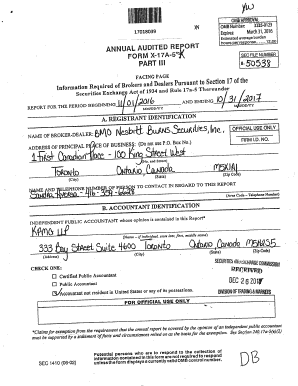 17018009
OMB APPROVAL
OMB Number: 3235-0123
Expires: March 31, 2016
Estimated average burden
ANNUAL AUDITED REPORT
FORM X-17A-5
PART III
SEC FILE NUMBER
50538
FACING PAGE
Information Required of Brokers and Dealers Pursuant to Section 17 of the
Securities Exchange Act of 1934 and Rule 17a-5 Thereunder
REPORT FOR THE PERIOD BEGINNING 11/01/2016 AND ENDING 10/31/2017
MM/DD/YY MM/DD/YY
A. REGISTRANT IDENTIFICATION
NAME OF BROKER-DEALER: BMO Nesbitt Burns Securities, Inc.
OFFICIAL USE ONLY
ADDRESS OF PRINCIPAL PLACE OF BUSINESS: (Do not use P.O. Box No.)
FIRM I.D. NO.
1 First Canadian Place - 100 King Street West
(No. and Street)
Toronto Ontario, Canada
(City) (State) (Zip Code)
NAME AND TELEPHONE NUMBER OF PERSON TO CONTACT IN REGARD TO THIS REPORT
(Area Code - Telephone Number)
B. ACCOUNTANT IDENTIFICATION
INDEPENDENT PUBLIC ACCOUNTANT whose opinion is contained in this Report*
KPMG LLP
(Name - if individual, state last, first, middle name)
333 Bay Street Suite 4600 Toronto Ontario Canada
(Address) (City) (State) (Zip Code)
SECURITIES AND EXCHANGE COMMISSION
RECEIVED
CHECK ONE:
Certified Public Accountant
DEC 26 2017
Public Accountant
Accountant not resident in United States or any of its possessions.
DIVISION OF TRADING & MARKETS
FOR OFFICIAL USE ONLY
*Claims for exemption from the requirement that the annual report be covered by the opinion of an independent public accountant
must be supported by a statement of facts and circumstances relied on as the basis for the exemption. See Section 240.17a-5(e)(2)
SEC 1410 (06-02)
Potential persons who are to respond to the collection of
information contained in this form are not required to respond
unless the form displays a currently valid OMB control number.
DB